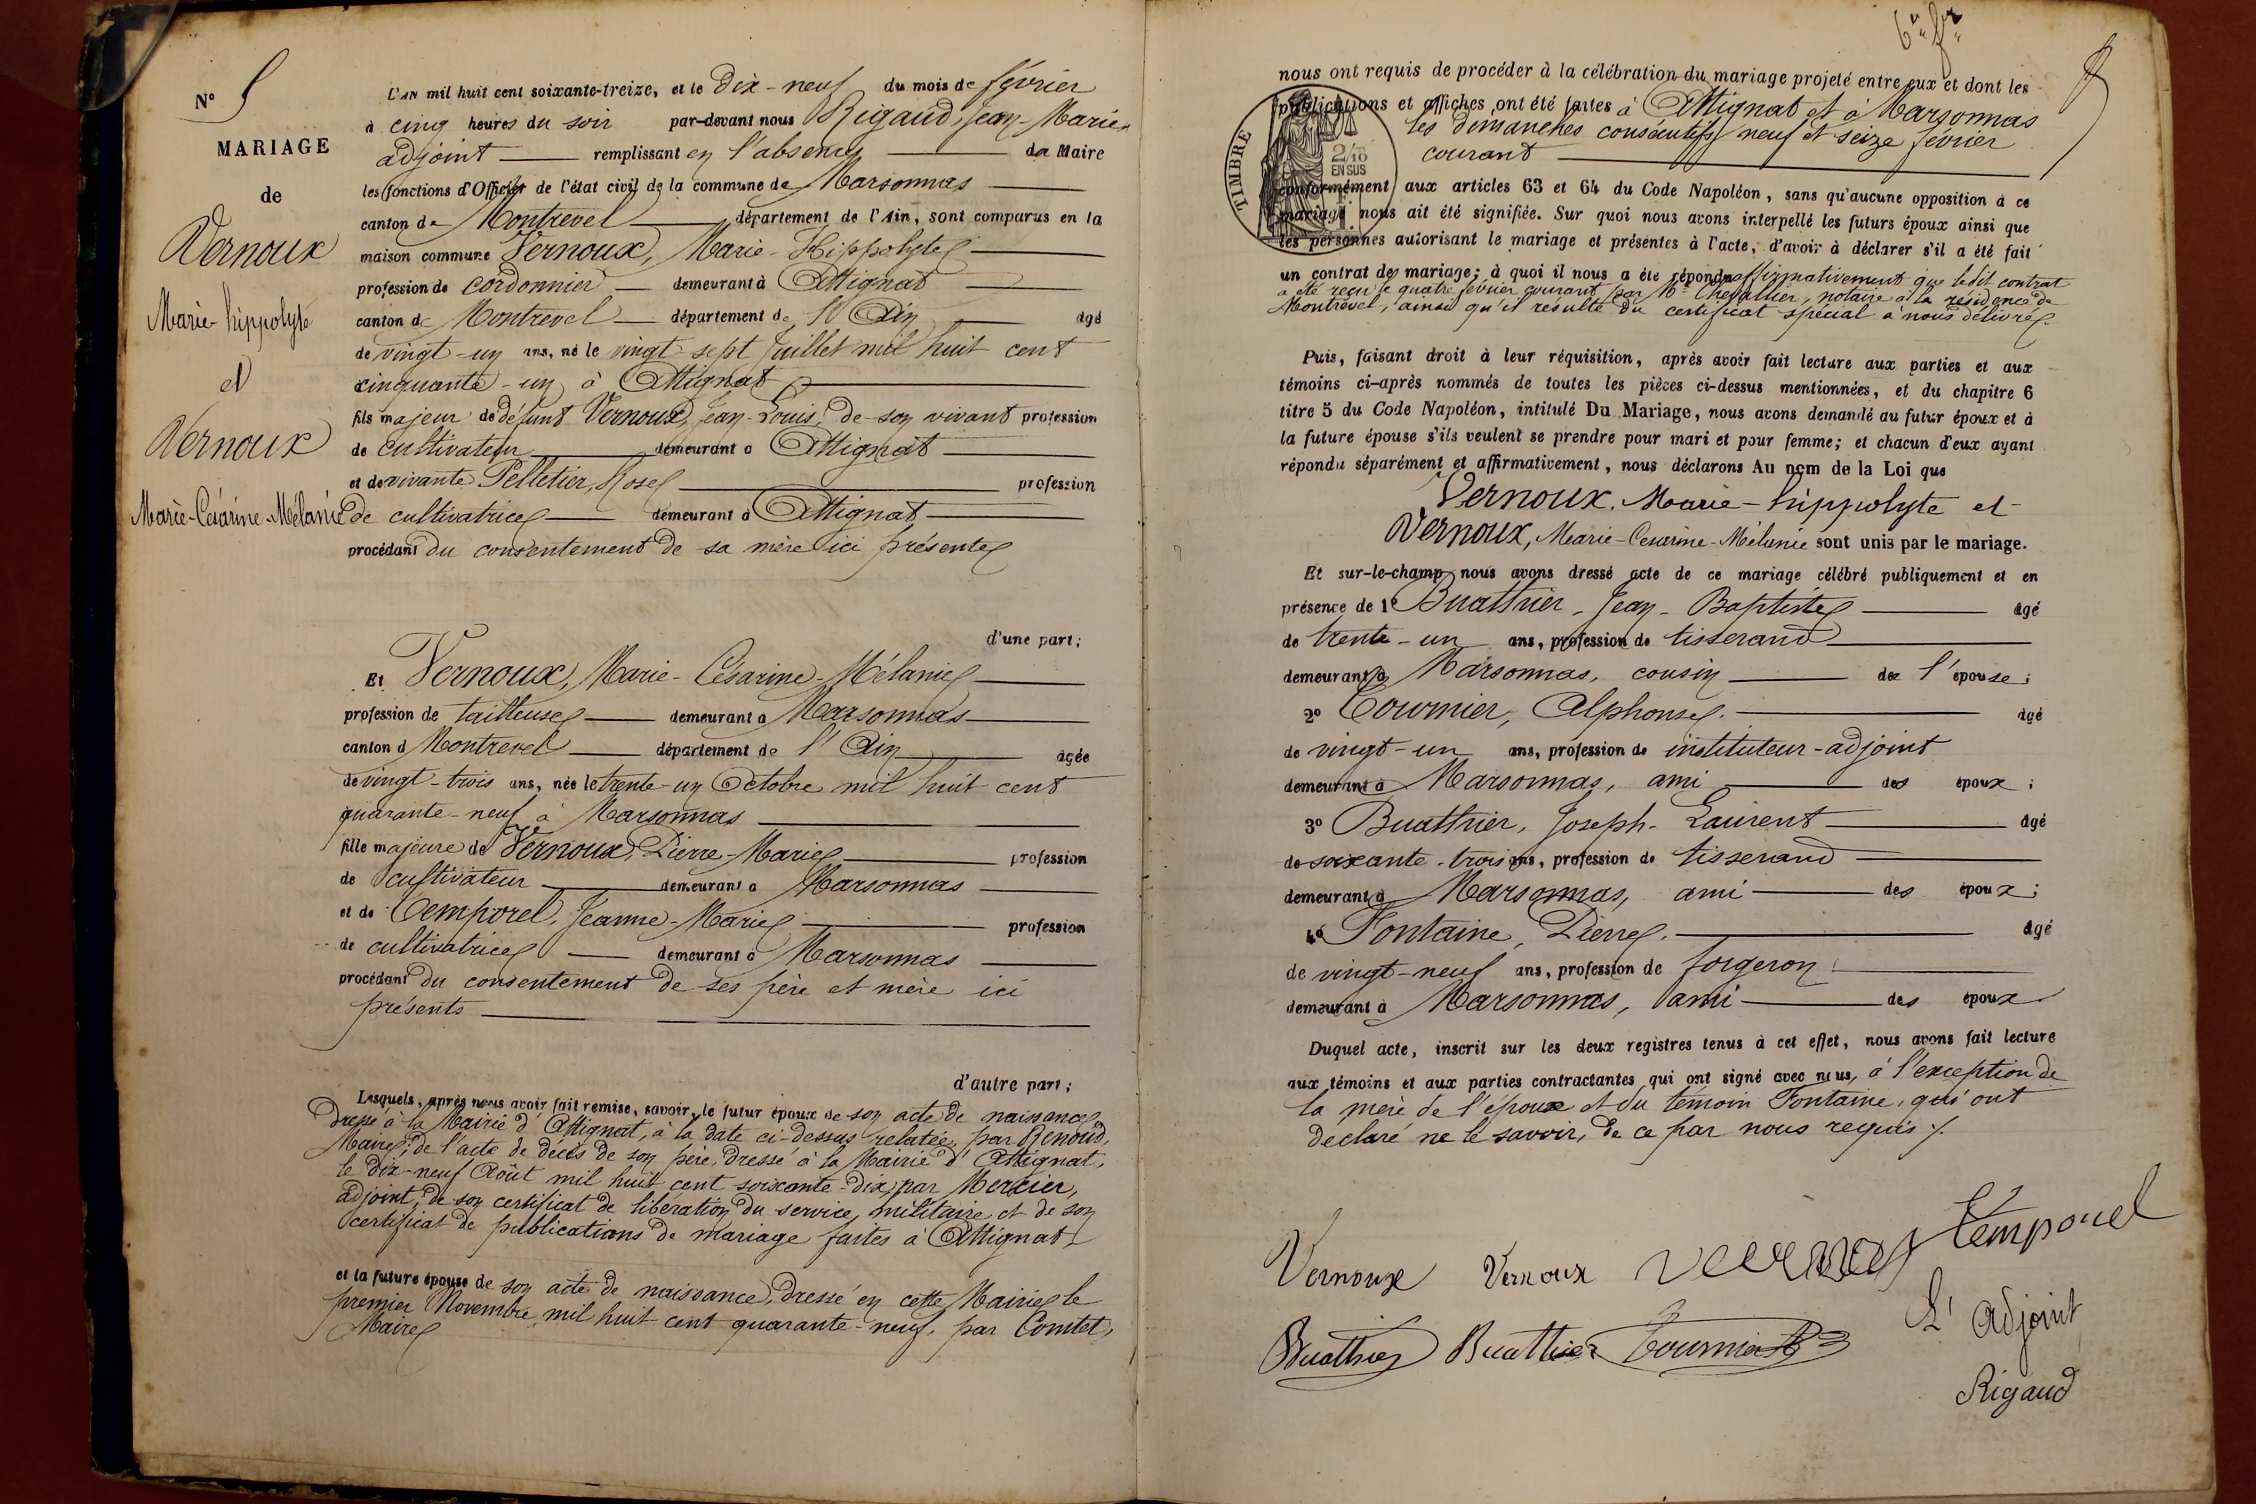 N° 5
MARIAGE
de
Vernoux
Marie-hippolyte
et
Vernoux
Marie-Césarine-Mélanie
L'AN mil huit cent soixante-treize, et le Dix-neuf du mois de février
à cinq heures du soir par-devant nous Rigaud, Jean-Marie,
adjoint remplissant en l'absence du Maire
les fonctions d'Officier de l'état civil de la commune de Marsonnas
canton de Montrevel département de l'Ain, sont comparus en la
maison commune Vernoux, Marie-Hippolyte
profession de cordonnier demeurant à Attignat
canton de Montrevel département de l'Ain âgé
de vingt-un ans, né le vingt-sept Juillet mil huit cent
cinquante-un, à Attignat
fils majeur de défunt Vernoux, Jean-Louis, de son vivant profession
de cultivateur demeurant à Attignat
et de vivante Pelletier, Rose profession
de cultivatrice demeurant à Attignat
procédant du consentement de sa mère ici présente
d'une part;
Et Vernoux, Marie-Césarine-Mélanie
profession de tailleuse demeurant à Marsonnas
canton d Montrevel département de l'Ain âgée
de vingt-trois ans, née le trente-un Octobre mil huit cent
quarante-neuf à Marsonnas
fille majeure de Vernoux, Pierre-Marie profession
de cultivateur demeurant à Marsonnas
et de Temporel, Jeanne-Marie profession
de cultivatrice demeurant à Marsonnas
procédant du consentement de ses père et mère ici
présents
d'autre part;
Lesquels, après nous avoir fait remise, savoir, le futur époux de son acte de naissance,
dressé à la Mairie d'Attignat, à la date ci-dessus relatée, par Renoud,
Maire; de l'acte de décès de son père, dressé à la Mairie d'Attignat,
le dix-neuf Août mil huit cent soixante-dix, par Mercier,
adjoint, de son certificat de libération du service militaire et de son
certificat de publications de mariage faites à Attignat
et la future épouse de son acte de naissance, dressé en cette Mairie le
premier Novembre mil huit cent quarante-neuf, par Comtet,
Maire
6" f"
nous ont requis de procéder à la célébration du mariage projeté entre eux et dont les
publications et affiches ont été faites à Attignat et à Marsonnas
les dimanches consécutifs neuf et seize février
courant
TIMBRE
2/10
EN SUS
conformément aux articles 63 et 64 du Code Napoléon, sans qu'aucune opposition à ce
mariage nous ait été signifiée. Sur quoi nous avons interpellé les futurs époux ainsi que
les personnes autorisant le mariage et présentes à l'acte, d'avoir à déclarer s'il a été fait
un contrat de mariage; à quoi il nous a été répondu affirmativement que ledit contrat
a été reçu le quatre février courant par Me Chevallier, notaire à la résidence de
Montrevel, ainsi qu'il résulte du certificat spécial à nous délivré
Puis, faisant droit à leur réquisition, après avoir fait lecture aux parties et aux
témoins ci-après nommés de toutes les pièces ci-dessus mentionnées, et du chapitre 6
titre 5 du Code Napoléon, intitulé Du Mariage, nous avons demandé au futur époux et à
la future épouse s'ils veulent se prendre pour mari et pour femme; et chacun d'eux ayant
répondu séparément et affirmativement, nous déclarons Au nom de la Loi que
Vernoux, Marie-hippolyte et
Vernoux, Marie-Césarine-Mélanie sont unis par le mariage.
Et sur-le-champ nous avons dressé acte de ce mariage célébré publiquement et en
présence de 1° Buathier, Jean-Baptiste âgé
de trente-un ans, profession de tisserand
demeurant à Marsonnas, cousin de l'épouse;
2° Tournier, Alphonse. âgé
de vingt-un ans, profession de instituteur-adjoint
demeurant à Marsonnas, ami des époux;
3° Buathier, Joseph-Laurent âgé
de soixante-trois ans, profession de tisserand
demeurant à Marsonnas, ami des époux;
4° Fontaine, Pierre. âgé
de vingt-neuf ans, profession de forgeron
demeurant à Marsonnas, ami des époux
Duquel acte, inscrit sur les deux registres tenus à cet effet, nous avons fait lecture
aux témoins et aux parties contractantes qui ont signé avec nous, à l'exception de
la mère de l'époux et du témoin Fontaine, qui ont
déclaré ne le savoir, de ce par nous requis /.
Vernoux Vernoux Vernoux Temporel
Buathier Buathier Tournier
L'Adjoint
Rigaud